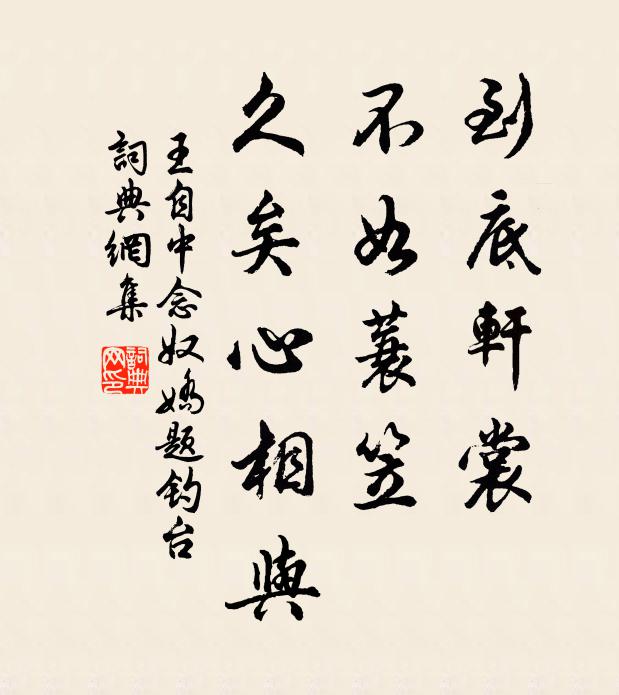 到底軒裳
不如蓑笠
久矣心相與
王自中念奴嬌題钓台
詞典網集
詞典网印